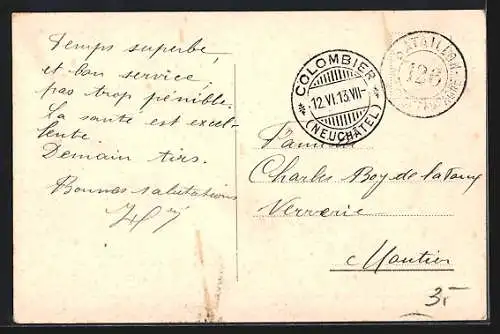 Temps superbe,
et bon service
pas trop pénible.
La santé est excel-
lente.
Demain tirs.
Bonnes salutations
COLOMBIER
12.VI.13.VII-
(NEUCHÂTEL)
BATAILLON
126
Famille
Charles Boy de la Tour
Verrerie
Moutier
3.-